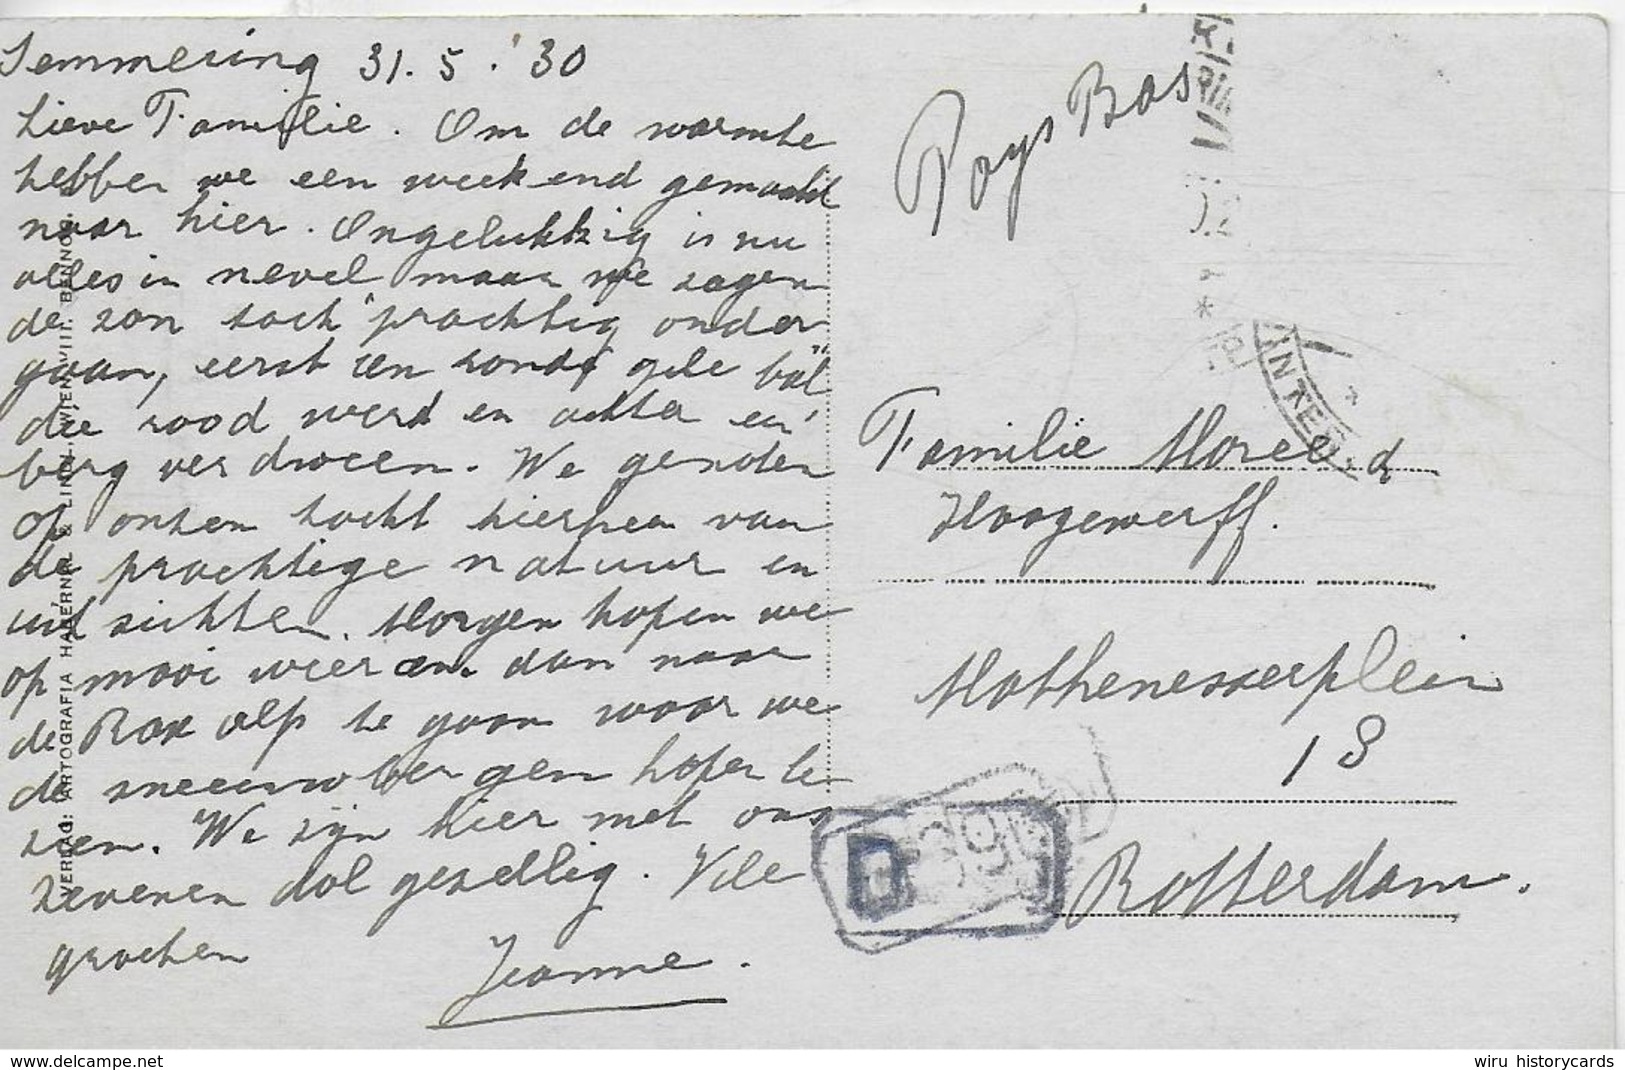 Semmering 31.5.'30
Lieve Familie. Om de warmte
hebben we een weekend gemaakt
naar hier. Ongelukkig is nu
alles in nevel maar we zagen
de zon toch prachtig onder
gaan, eerst een ronde gele bal
die rood werd en achter een
berg verdween. We genoten
op onzen tocht hierheen van
de prachtige natuur en
uitzichten. Morgen hopen we
op mooi weer om dan naar
de Rax alp te gaan waar we
de sneeuwbergen hopen te
zien. We zijn hier met ons
zevenen dol gezellig. Vele
groeten
Jeanne.
VERLAG: KARTOGRAFIA WIEN VIII. BENNOG.
Pays Bas
Familie Moree &
Hoogewerff.
Mathenesserplein
18
Rotterdam.
INTER
D
delcampe.net
wiru historycards